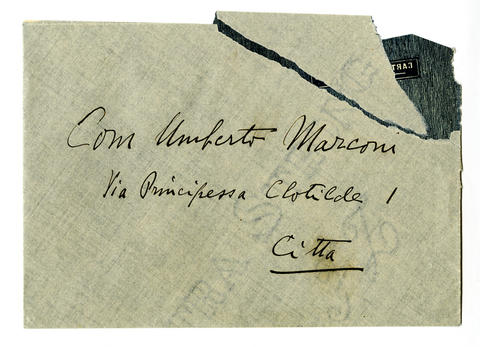 Com Umberto Marconi
Via Principessa Clotilde 1
Citta
CART